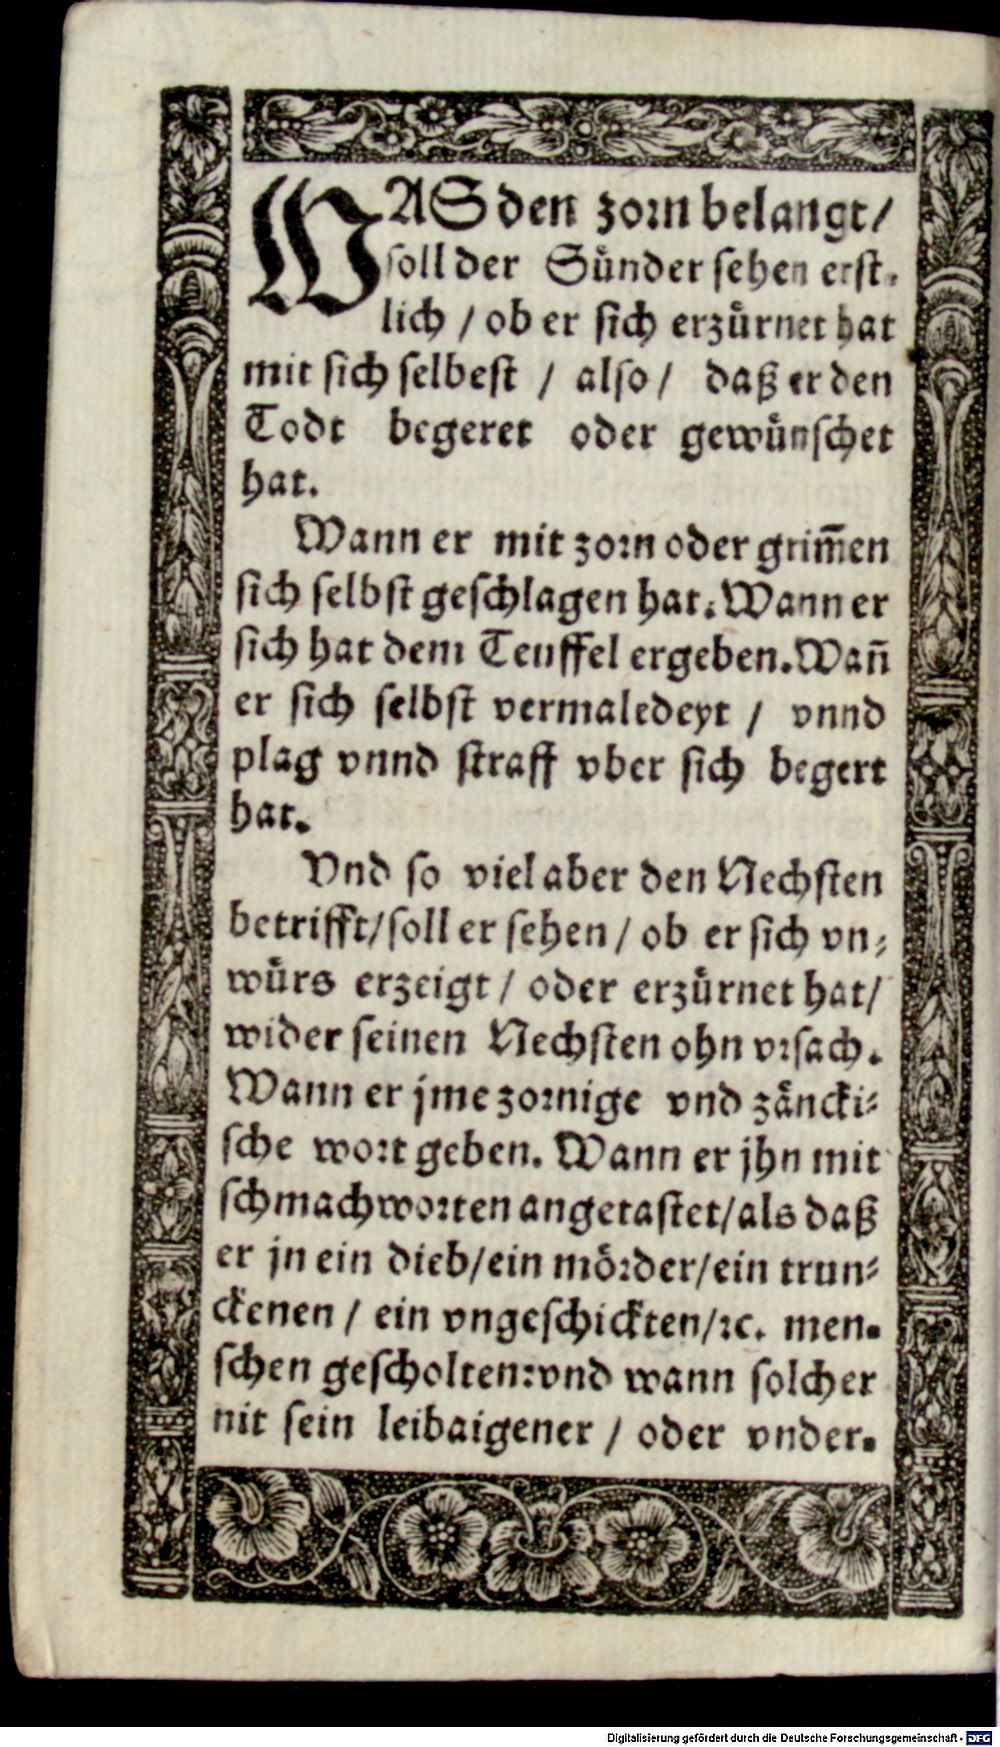 WAS den zorn belangt/
soll der Sünder sehen erst-
lich / ob er sich erzürnet hat
mit sich selbest / also / daß er den
Todt begeret oder gewünschet
hat.
Wann er mit zorn oder grim̃en
sich selbst geschlagen hat. Wann er
sich hat dem Teuffel ergeben. Wañ
er sich selbst vermaledeyt / vnnd
plag vnnd straff vber sich begert
hat.
Vnd so viel aber den Nechsten
betrifft/soll er sehen / ob er sich vn-
würs erzeigt / oder erzürnet hat/
wider seinen Nechsten ohn vrsach.
Wann er jme zornige vnd zäncki-
sche wort geben. Wann er jhn mit
schmachworten angetastet/als daß
er jn ein dieb/ein mörder/ein trun-
ckenen / ein vngeschickten/ꝛc. men-
schen gescholten:vnd wann solcher
nit sein leibaigener / oder vnder-
Digitalisierung gefördert durch die Deutsche Forschungsgemeinschaft - DFG